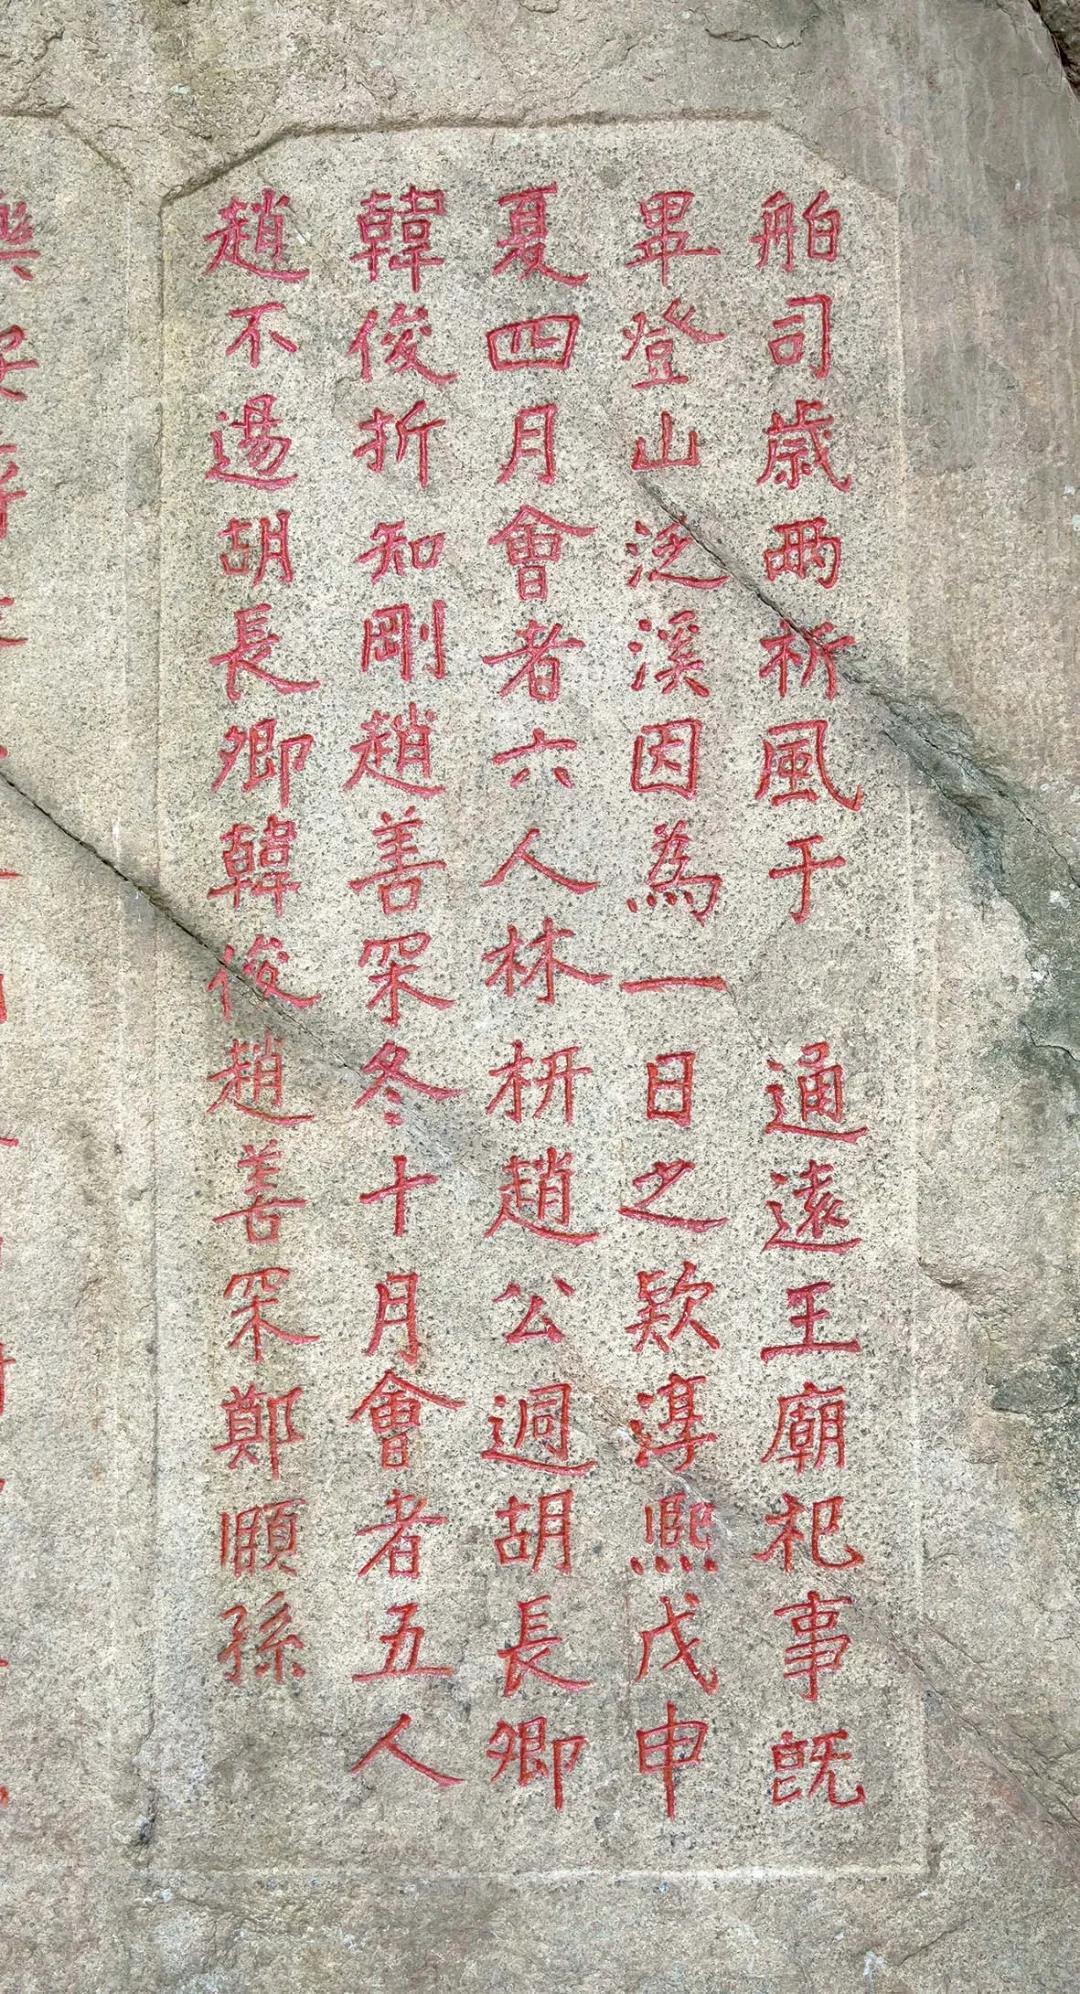 舶司歲兩祈風于　通遠王廟祀事旣
畢登山泛溪因為一日之款淳熙戊申
夏四月會者六人林枅趙公迥胡長卿
韓俊折知剛趙善罙冬十月會者五人
趙不逷胡長卿韓俊趙善罙鄭頤孫